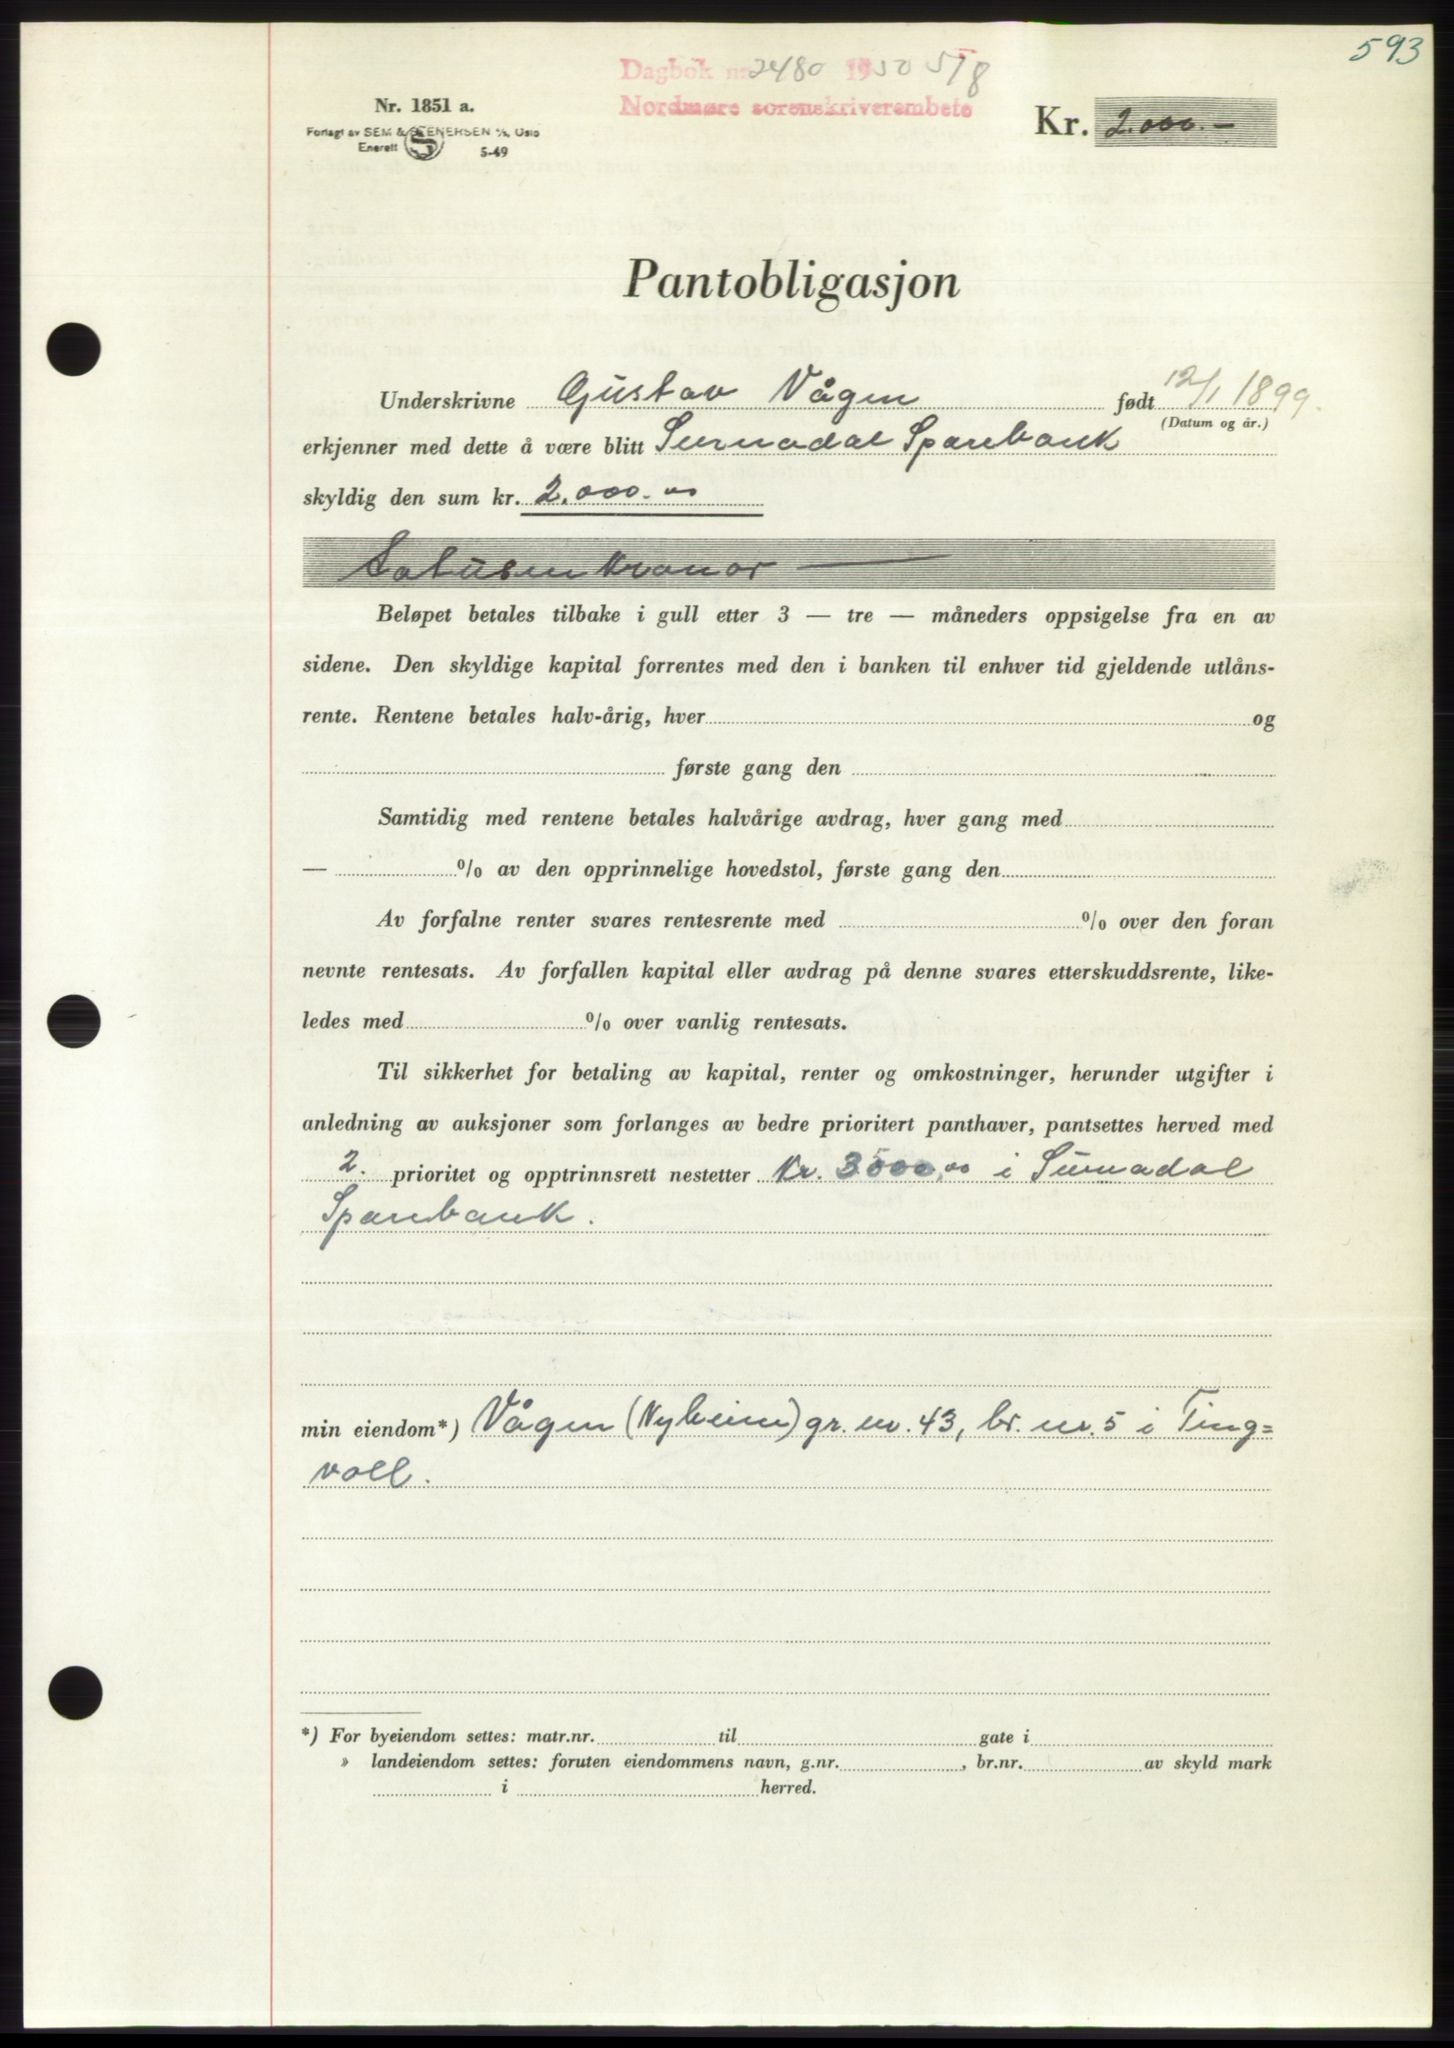 593
Dagbok nr. 2480 1950 5/8
Nordmøre sorenskriverembete
Nr. 1851 a.
Forlagt av SEM & STENERSEN A/S, Oslo
Enerett S 5-49
Kr. 2.000.-
Pantobligasjon
Underskrivne Gustav Vågen født 12/1 1899.
(Datum og år.)
erkjenner med dette å være blitt Surnadal Sparebank
skyldig den sum kr. 2.000.00
Totusen kroner —
Beløpet betales tilbake i gull etter 3 — tre — måneders oppsigelse fra en av
sidene. Den skyldige kapital forrentes med den i banken til enhver tid gjeldende utlåns-
rente. Rentene betales halv-årig, hver og
første gang den
Samtidig med rentene betales halvårige avdrag, hver gang med
— % av den opprinnelige hovedstol, første gang den
Av forfalne renter svares rentesrente med % over den foran
nevnte rentesats. Av forfallen kapital eller avdrag på denne svares etterskuddsrente, like-
ledes med % over vanlig rentesats.
Til sikkerhet for betaling av kapital, renter og omkostninger, herunder utgifter i
anledning av auksjoner som forlanges av bedre prioritert panthaver, pantsettes herved med
2. prioritet og opptrinnsrett nestetter Kr. 3500,00 i Surnadal
Sparebank.
min eiendom*) Vågen (Nyheim) gr. nr. 43, br. nr. 5 i Ting=
voll.
*) For byeiendom settes: matr.nr. til gate i
» landeiendom settes: foruten eiendommens navn, g.nr. , br.nr. av skyld mark
i herred.